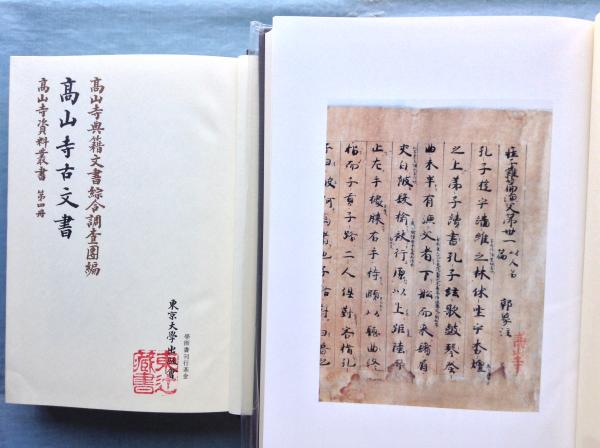 高山寺典籍文書綜合調査團編
高山寺古文書
高山寺資料叢書 第四册
東京大學出版會
學術書刊行基金
藏書
莊子雜篇漁父第卅一
郭象注
孔子遊乎緇維之林休坐乎杏壇
之上弟子讀書孔子絃歌鼓琴奏
曲未半有漁父者下船而來鬚眉
交白被髮揄袂行原以上距陸而
止左手據膝右手持頤以聽曲終
而招子貢子路二人俱對客指孔
高山寺